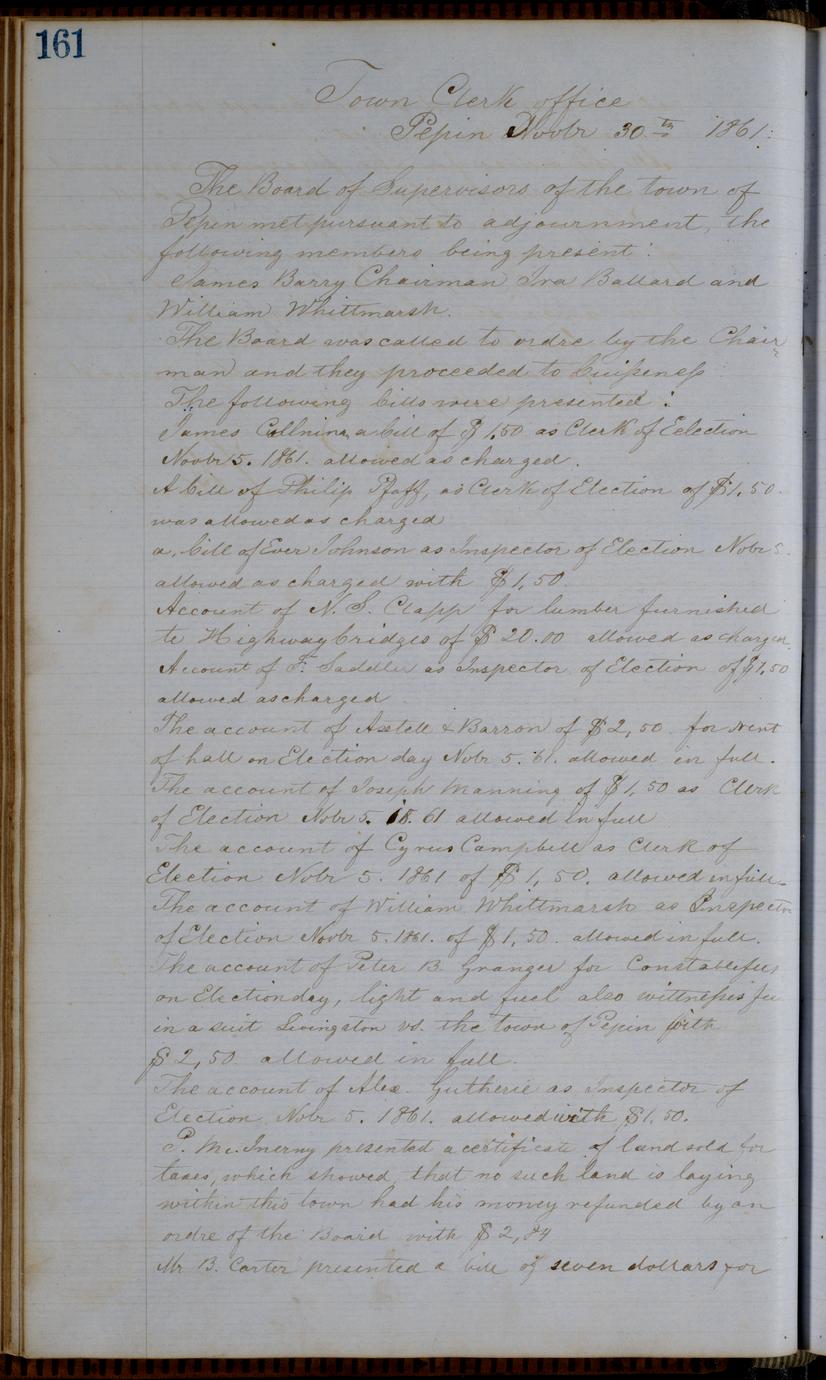 161
Town Clerk office
Pepin Novbr 30th 1861.
The Board of Supervisors of the town of
Pepin met pursuant to adjournment, the
following members being present:
James Barry Chairman Ira Ballard and
William Whittmarsh.
The Board was called to ordre by the Chair
man and they proceeded to buissness
The following bills were presented:
James a bill of $1,50 as Clerk of Eelection
Novbr 5. 1861. allowed as charged.
A bill of Philip Pfaff, as Clerk of Election of $1,50.
was allowed as charged
a, bill of Ever Johnson as Inspector of Election Nobr 5.
allowed as charged with $1,50.
Account of N. S. Clapp for lumber furnished
to Highway bridges of $20.00 allowed as charged.
Account of F. Saddler as Inspector of Election of $1,50
allowed as charged.
The account of Axtell & Barron of $2,50 for rent
of hall on Election day Nobr 5. 61. allowed in full.
The account of Joseph Manning of $1,50 as Clerk
of Election Nobr 5. 18.61 allowed in full
The account of Cyrus Campbell as Clerk of
Election Nobr 5. 1861 of $1,50. allowed in full.
The account of William Whittmarsh as Inspector
of Election Novbr 5. 1861. of $1,50. allowed in full.
The account of Peter B. Granger for Constable fees
on Election day, light and fuel also wittnesses fee
in a suit Livingston vs. the town of Pepin with
$2,50 allowed in full.
The account of Alex. Gutherie as Inspector of
Election Nobr 5. 1861. allowed with $1,50.
P. Mc. Inerny presented a certificate of land sold for
taxes, which showed that no such land is laying
within this town had his money refunded by an
ordre of the Board with $2,84
Mr B. Carter presented a bill of seven dollars for